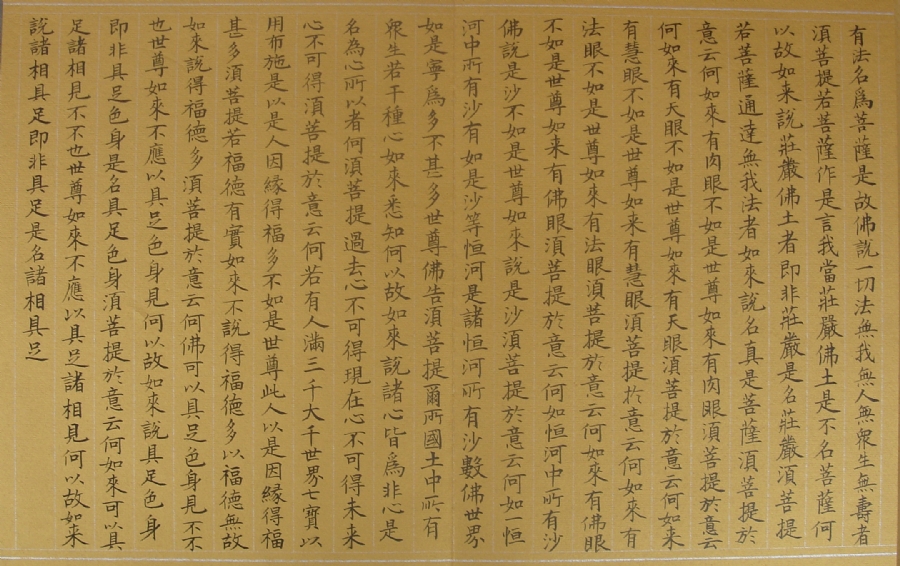 有法名爲菩薩是故佛說一切法無我無人無衆生無壽者
須菩提若菩薩作是言我當莊嚴佛土是不名菩薩何
以故如来說莊嚴佛土者即非莊嚴是名莊嚴須菩提
若菩薩通達無我法者如來說名真是菩薩須菩提於
意云何如來有肉眼不如是世尊如來有肉眼須菩提於意云
何如來有天眼不如是世尊如來有天眼須菩提於意云何如来
有慧眼不如是世尊如来有慧眼須菩提於意云何如來有
法眼不如是世尊如來有法眼須菩提於意云何如來有佛眼
不如是世尊如來有佛眼須菩提於意云何如恒河中所有沙
佛說是沙不如是世尊如來說是沙須菩提於意云何如一恒
河中所有沙有如是沙等恒河是諸恒河所有沙數佛世界
如是寧爲多不甚多世尊佛告須菩提爾所國土中所有
衆生若干種心如來悉知何以故如來說諸心皆爲非心是
名為心所以者何須菩提過去心不可得現在心不可得未来
心不可得須菩提於意云何若有人滿三千大千世界七寶以
用布施是以是人因緣得福多不如是世尊此人以是因緣得福
甚多須菩提若福德有實如來不說得福德多以福德無故
如來說得福德多須菩提於意云何佛可以具足色身見不不
也世尊如來不應以具足色身見何以故如來說具足色身
即非具足色身是名具足色身須菩提於意云何如來可以具
足諸相見不不也世尊如來不應以具足諸相見何以故如来
說諸相具足即非具足是名諸相具足